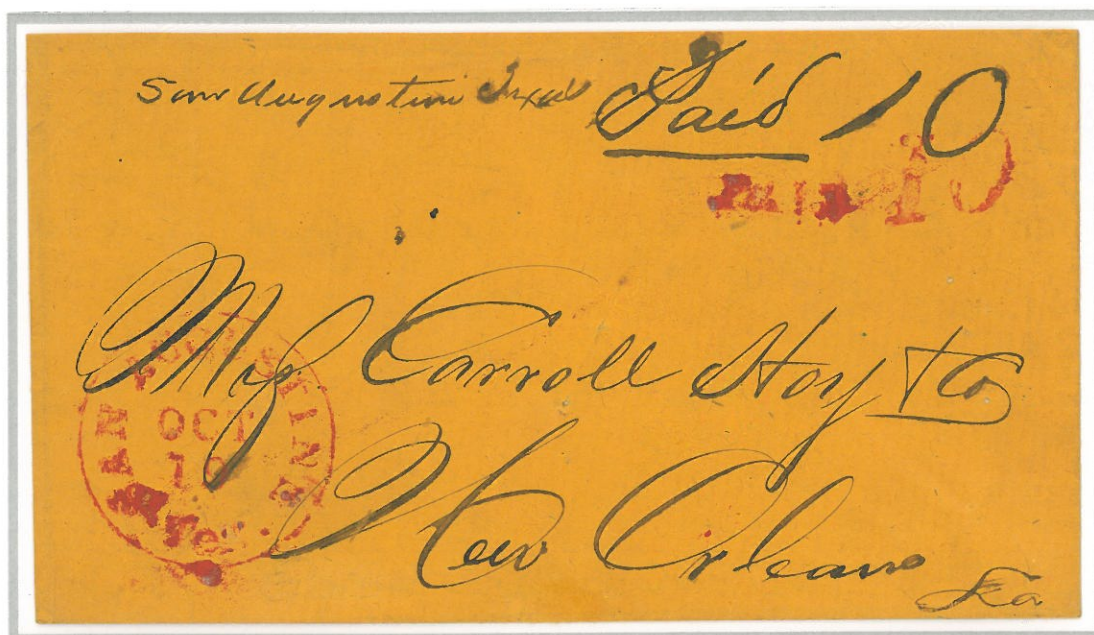 San Augustine Texas
Paid 10
PAID 10
Maj Carroll Hoy & Co
New Orleans
La
SAN AUGUSTINE
OCT
Tex.